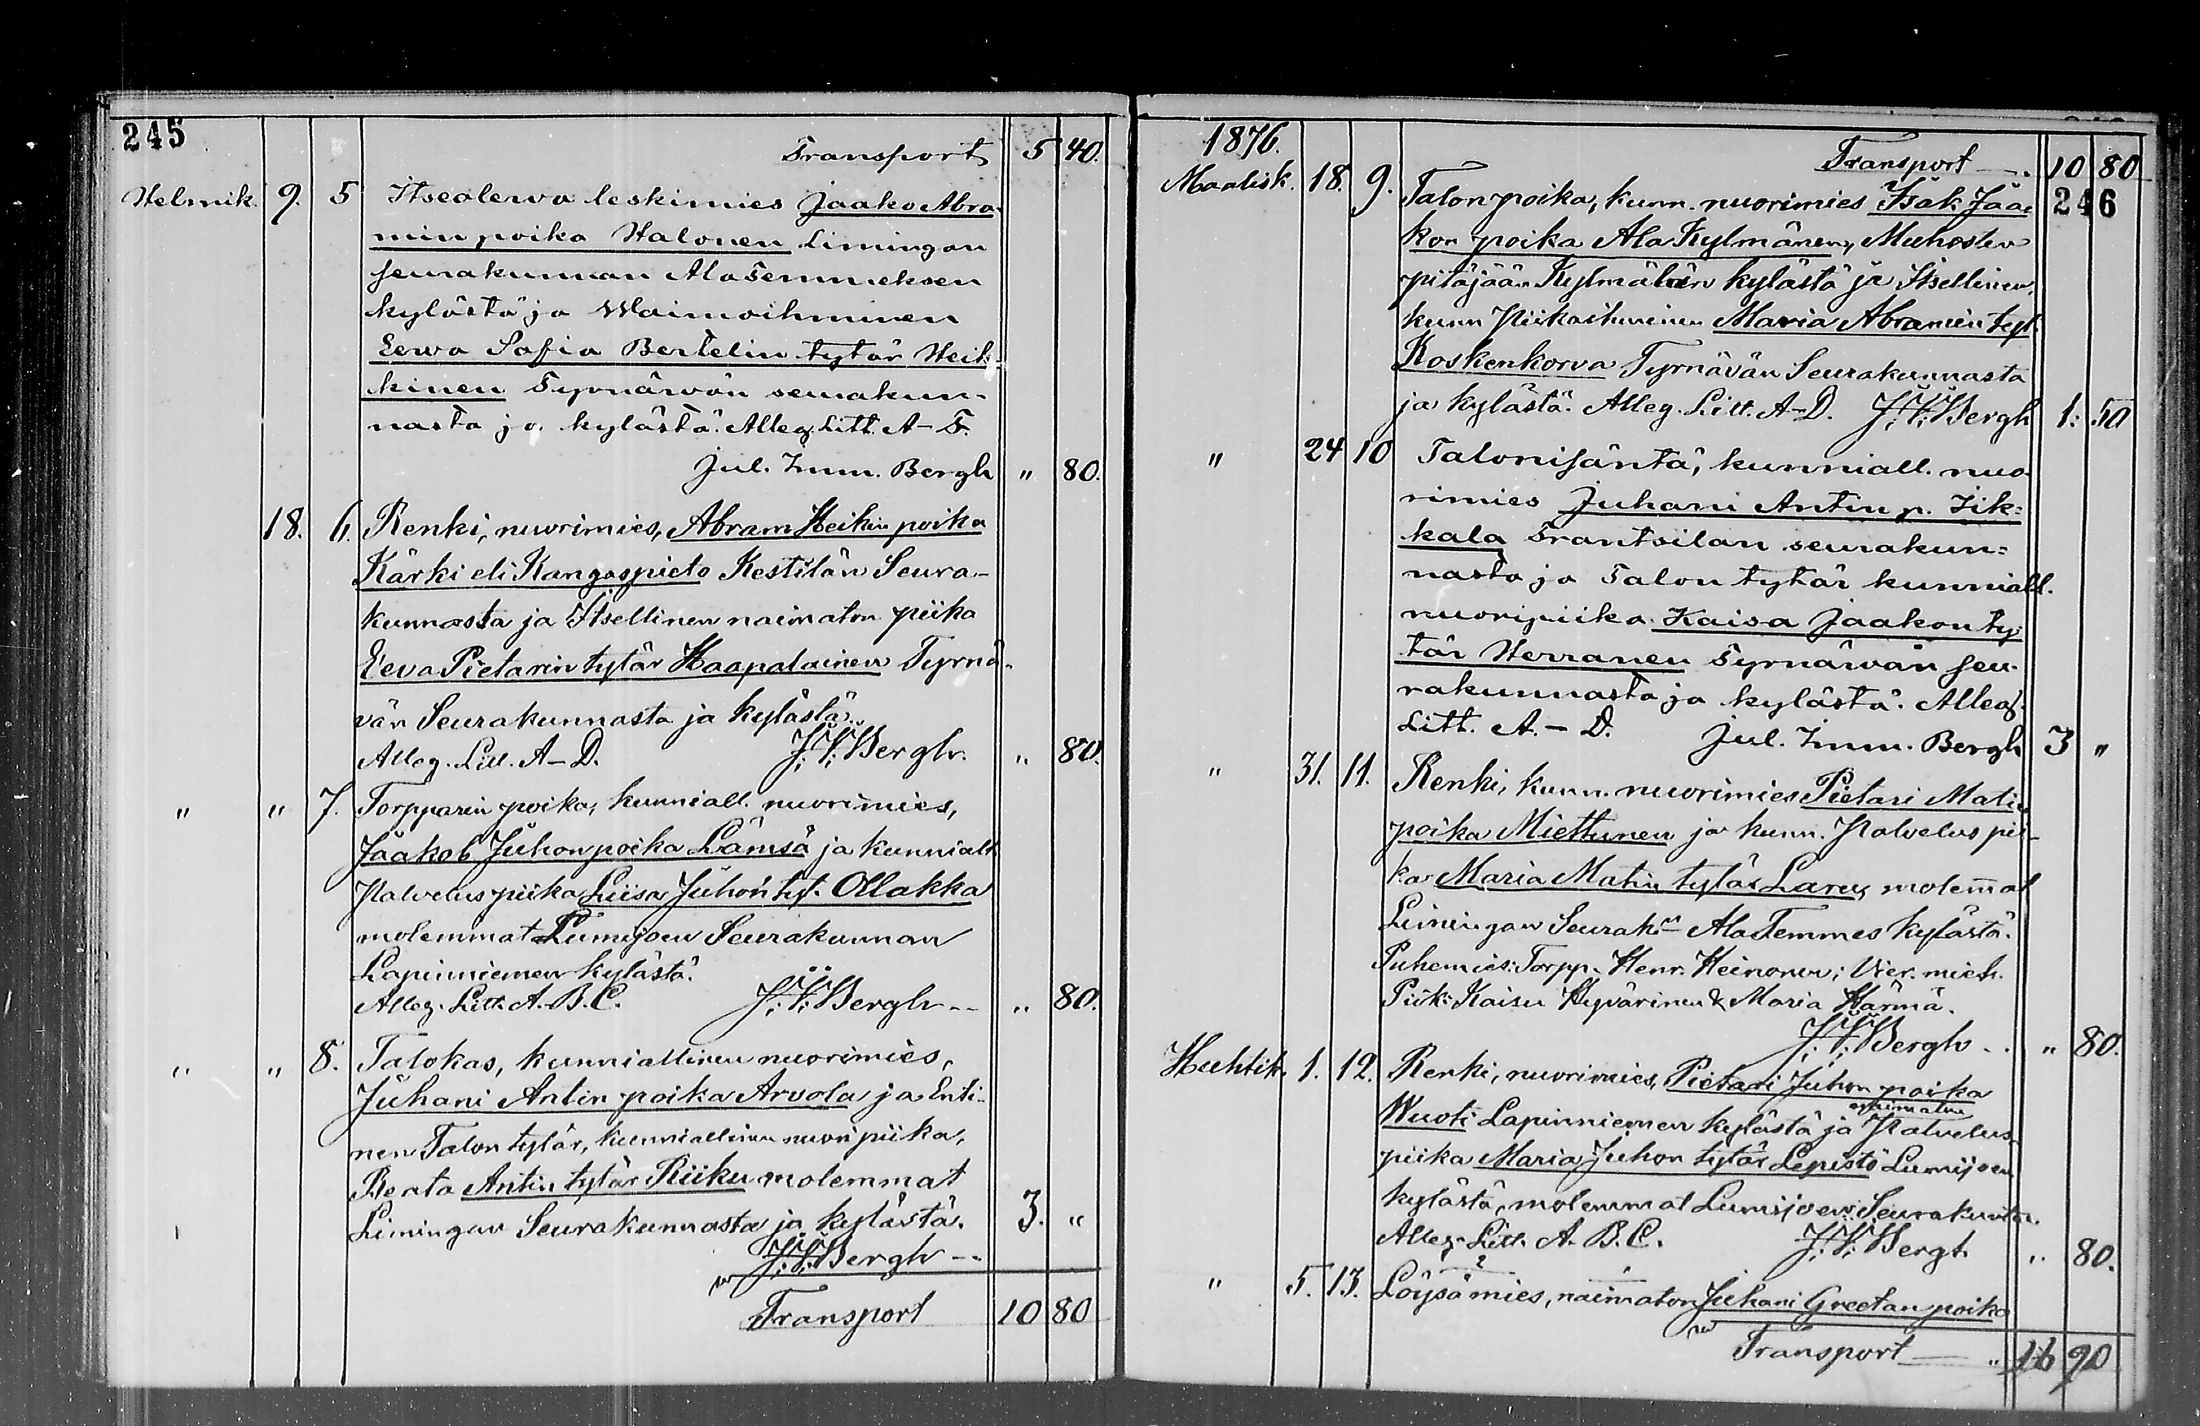 245
Transport 5 40.
Helmik. 9. 5 Itsealewa leskimies Jaako Abra-
min poika Halonen Limingan
seurakunnan AlaTemmeksen
kylästä ja Waimoihminen
Eewa Sofia Bertelin tytär Heik-
kinen Tyrnäwän seurakun-
nasta ja kylästä. Alleg. Litt. A-F.
Jul. Imm. Bergh " 80.
18. 6. Renki, nuorimies, Abram Heikin poika
Kärki eli Kangaspieto Kestilän Seura-
kunnasta ja Itsellinen naimaton piika
Eeva Pietarin tytär Haapalainen Tyrnä-
vän Seurakunnasta ja kylästä.
Alleg. Litt. A-D. J. I. Bergh. " 80.
" " 7. Torpparin poika, kunniall. nuorimies,
Jaakob Juhon poika Lämsä ja kunniall.
Palvelus piika Liisa Juhon tyt. Ollakka
molemmat Lumijoen Seurakunnan
Lapinniemen kylästä.
Alleg. Litt. A. B. C. J. I. Bergh -- " 80.
" " 8. Talokas, kunniallinen nuorimies,
Juhani Antin poika Arvola ja Enti-
nen Talon tytär, kunniallinen nuori piika,
Reata Antin tytär Riiku molemmat
Limingan Seurakunnasta ja kylästä. 3. "
J. I. Bergh --
Transport 10 80
1876.
Transport -- 10 80
246
Maalisk. 18. 9. Talon poika, kunn. nuorimies Isak Jaa-
kon poika Ala Kylmänen, Muhoksen
pitäjään Kylmälän kylästä ja Itsellinen,
kunn Piikaihminen Maria Abramin tyt.
Koskenkorva Tyrnävän Seurakunnasta
ja kylästä. Alleg. Litt. A-D. J. I. Bergh 1: 50
" 24 10 Talonisäntä, kunniall. nuo-
rimies Juhani Antin p. Iik-
kala Frantsilan seurakun-
nasta ja Talon tytär kunniall.
nuoripiika Kaisa Jaakon ty-
tär Herranen Tyrnäwän seu-
rakunnasta ja kylästä. Alleg.
Litt. A. - D. Jul. Imm. Bergh 3 "
" 31. 11. Renki, kunn. nuorimies Pietari Matin
poika Miettunen ja kunn. Palvelus pii-
ka Maria Matin tytär Laru, molemmat
Limingan Seurak:n AlaTemmes kylästä.
Puhemies: Torpp. Henr. Heinonen; Vier. mieh.
Piik: Kaisu Hyvärinen & Maria Härmä.
J. I. Bergh -- " 80.
Huhtik. 1. 12. Renki, nuorimies, Pietari Juhon poika
Wuoti Lapinniemen kylästä ja Palvelus-
piika Maria Juhon tytär Lepistö Lumijoen
kylästä, molemmat Lumijoen Seurakunta.
Alleg. Litt. A. B. C. J. I. Bergh " 80.
" 5. 13. Löysä mies, naimaton Juhani Greetan poika
Transport -- " 16 90